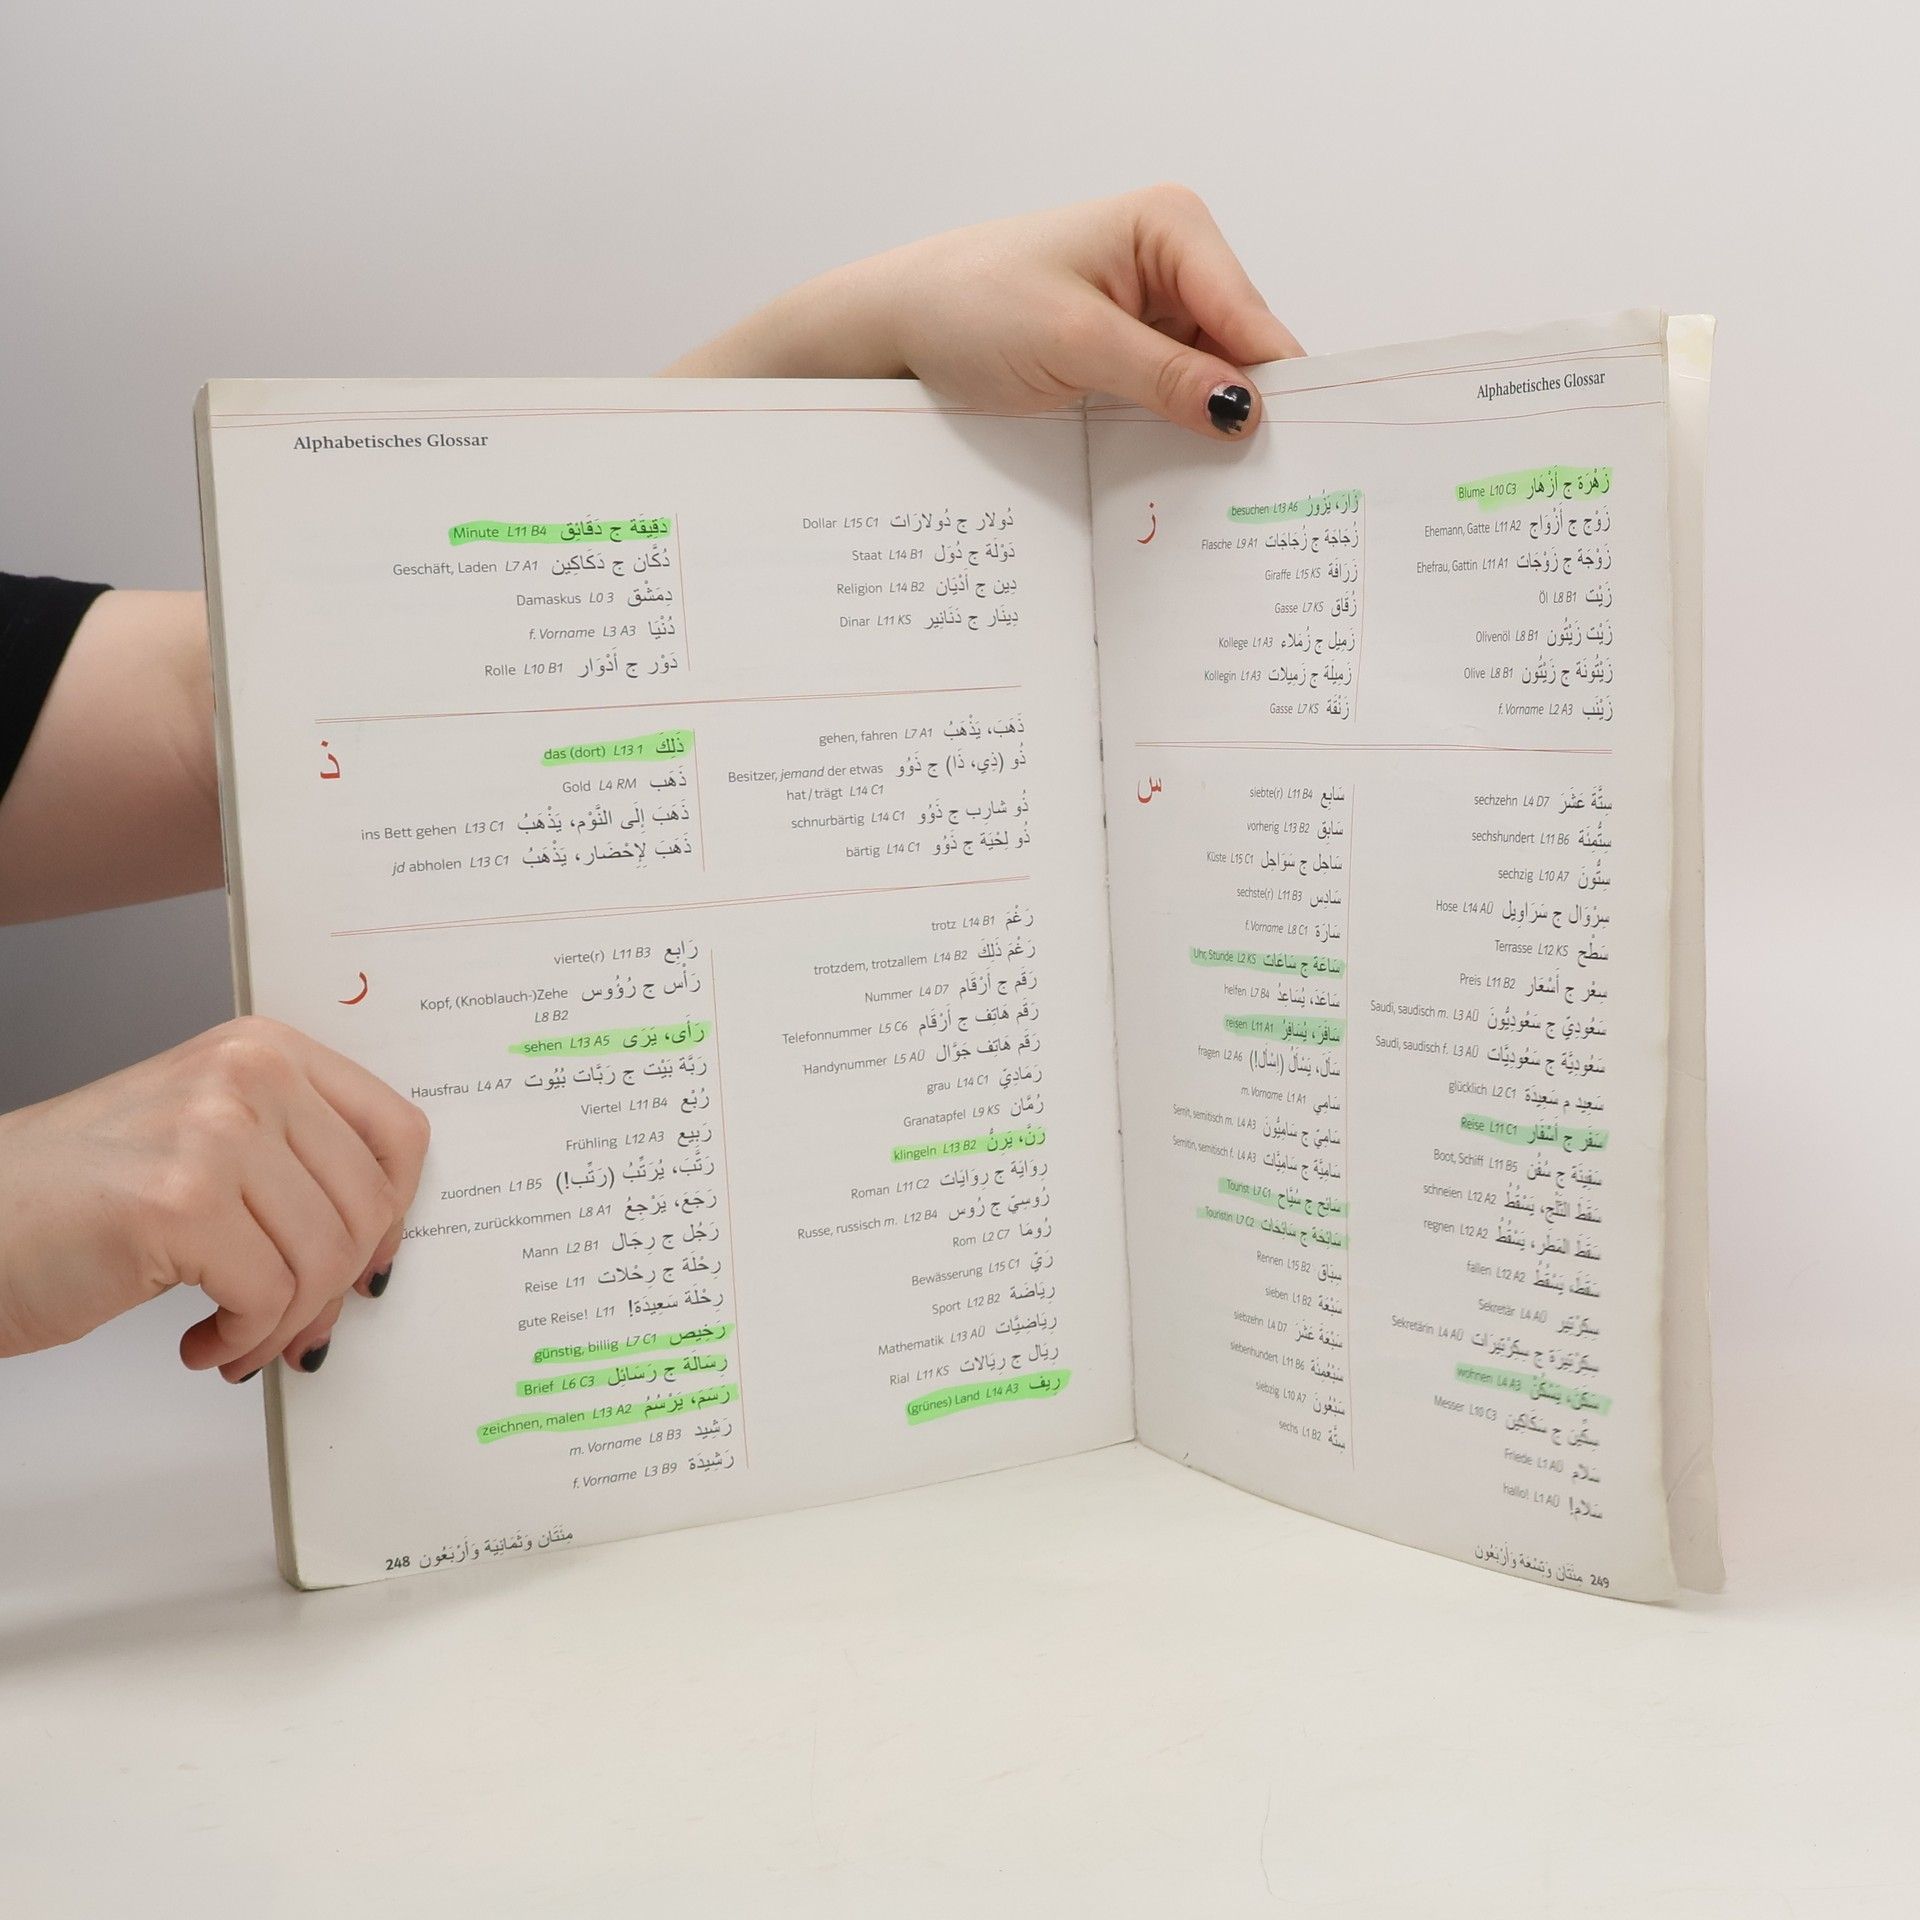 Alphabetisches Glossar
Minute L11 B4 دَقِيقَة ج دَقَائِق
Geschäft, Laden L7 A1 دُكَّان ج دَكَاكِين
Damaskus L0 3 دِمَشْق
f. Vorname L3 A3 دُنْيَا
Rolle L10 B1 دَوْر ج أَدْوَار
Dollar L15 C1 دُولار ج دُولارَات
Staat L14 B1 دَوْلَة ج دُوَل
Religion L14 B2 دِين ج أَدْيَان
Dinar L11 KS دِينَار ج دَنَانِير
ذ
das (dort) L13 1 ذَلِكَ
Gold L4 RM ذَهَب
ins Bett gehen L13 C1 ذَهَبَ إِلَى النَّوْم، يَذْهَبُ
jd abholen L13 C1 ذَهَبَ لِإِحْضَار، يَذْهَبُ
gehen, fahren L7 A1 ذَهَبَ، يَذْهَبُ
Besitzer, jemand der etwas ذُو (ذِي، ذَا) ج ذَوُو
hat / trägt L14 C1
schnurbärtig L14 C1 ذُو شارِب ج ذَوُو
bärtig L14 C1 ذُو لِحْيَة ج ذَوُو
ر
vierte(r) L11 B3 رَابِع
Kopf, (Knoblauch-)Zehe رَأْس ج رُؤُوس
L8 B2
sehen L13 A5 رَأَى، يَرَى
Hausfrau L4 A7 رَبَّة بَيْت ج رَبَّات بُيُوت
Viertel L11 B4 رُبْع
Frühling L12 A3 رَبِيع
zuordnen L1 B5 رَتَّبَ، يُرَتِّبُ (رَتِّب!)
ückkehren, zurückkommen L8 A1 رَجَعَ، يَرْجِعُ
Mann L2 B1 رَجُل ج رِجَال
Reise L11 رِحْلَة ج رِحْلات
gute Reise! L11 رِحْلَة سَعِيدَة!
günstig, billig L7 C1 رَخِيص
Brief L6 C3 رِسَالَة ج رَسَائِل
zeichnen, malen L13 A2 رَسَمَ، يَرْسُمُ
m. Vorname L8 B3 رَشِيد
f. Vorname L3 B9 رَشِيدَة
trotz L14 B1 رَغْمَ
trotzdem, trotzallem L14 B2 رَغْمَ ذَلِكَ
Nummer L4 D7 رَقْم ج أَرْقَام
Telefonnummer L5 C6 رَقْم هَاتِف ج أَرْقَام
Handynummer L5 AÜ رَقْم هَاتِف جَوَّال
grau L14 C1 رَمَادِيّ
Granatapfel L9 KS رُمَّان
klingeln L13 B2 رَنَّ، يَرِنُّ
Roman L11 C2 رِوَايَة ج رِوَايَات
Russe, russisch m. L12 B4 رُوسِيّ ج رُوس
Rom L2 C7 رُومَا
Bewässerung L15 C1 رَيّ
Sport L12 B2 رِيَاضَة
Mathematik L13 AÜ رِيَاضِيَّات
Rial L11 KS رِيَال ج رِيَالات
(grünes) Land L14 A3 رِيف
248 مِئَتَان وَثَمَانِيَة وَأَرْبَعُون
Alphabetisches Glossar
ز
besuchen L13 A6 زَارَ، يَزُورُ
Flasche L9 A1 زُجَاجَة ج زُجَاجَات
Giraffe L15 KS زَرَافَة
Gasse L7 KS زُقَاق
Kollege L1 A3 زَمِيل ج زُمَلاء
Kollegin L1 A3 زَمِيلَة ج زَمِيلات
Gasse L7 KS زَنْقَة
Blume L10 C3 زَهْرَة ج أَزْهَار
Ehemann, Gatte L11 A2 زَوْج ج أَزْوَاج
Ehefrau, Gattin L11 A1 زَوْجَة ج زَوْجَات
Öl L8 B1 زَيْت
Olivenöl L8 B1 زَيْت زَيْتُون
Olive L8 B1 زَيْتُونَة ج زَيْتُون
f. Vorname L2 A3 زَيْنَب
س
siebte(r) L11 B4 سَابِع
vorherig L13 B2 سَابِق
Küste L15 C1 سَاحِل ج سَوَاحِل
sechste(r) L11 B3 سَادِس
f. Vorname L8 C1 سَارَة
Uhr, Stunde L2 KS سَاعَة ج سَاعَات
helfen L7 B4 سَاعَدَ، يُسَاعِدُ
reisen L11 A1 سَافَرَ، يُسَافِرُ
fragen L2 A6 سَأَلَ، يَسْأَلُ (اِسْأَل!)
m. Vorname L1 A1 سَامِي
Semit, semitisch m. L4 A3 سَامِيّ ج سَامِيُّونَ
Semitin, semitisch f. L4 A3 سَامِيَّة ج سَامِيَّات
Tourist L7 C1 سَائِح ج سُيَّاح
Touristin L7 C2 سَائِحَة ج سَائِحَات
Rennen L15 B2 سِبَاق
sieben L1 B2 سَبْعَة
siebzehn L4 D7 سَبْعَةَ عَشَرَ
siebenhundert L11 B6 سَبْعُمِئَة
siebzig L10 A7 سَبْعُونَ
sechs L1 B2 سِتَّة
sechzehn L4 D7 سِتَّةَ عَشَرَ
sechshundert L11 B6 سِتُّمِئَة
sechzig L10 A7 سِتُّونَ
Hose L14 AÜ سِرْوَال ج سَرَاوِيل
Terrasse L12 KS سَطْح
Preis L11 B2 سِعْر ج أَسْعَار
Saudi, saudisch m. L3 AÜ سَعُودِيّ ج سَعُودِيُّونَ
Saudi, saudisch f. L3 AÜ سَعُودِيَّة ج سَعُودِيَّات
glücklich L2 C1 سَعِيد م سَعِيدَة
Reise L11 C1 سَفَر ج أَسْفَار
Boot, Schiff L11 B5 سَفِينَة ج سُفُن
schneien L12 A2 سَقَطَ الثَّلْج، يَسْقُطُ
regnen L12 A2 سَقَطَ المَطَر، يَسْقُطُ
fallen L12 A2 سَقَطَ، يَسْقُطُ
Sekretär L4 AÜ سِكْرِتِير
Sekretärin L4 AÜ سِكْرِتِيرَة ج سِكْرِتِيرَات
wohnen L4 A3 سَكَنَ، يَسْكُنُ
Messer L10 C3 سِكِّين ج سَكَاكِين
Friede L1 AÜ سَلام
hallo! L1 AÜ سَلام!
مِئَتَان وَتِسْعَة وَأَرْبَعُون 249